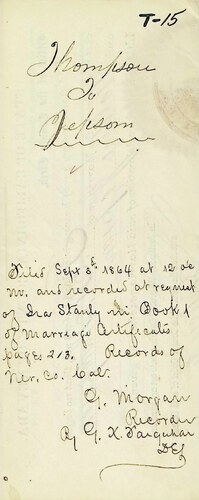 T-15
Thompson
To
Jepsom
Filed Sept 3d 1864 at 12 oc
m. and recorded at request
of Ira Stanly in Book 1
of Marriage Certificates
pages 213. Records of
Mer. Co. Cal.
G. Morgan
Recorder
By G. X. Farquhar